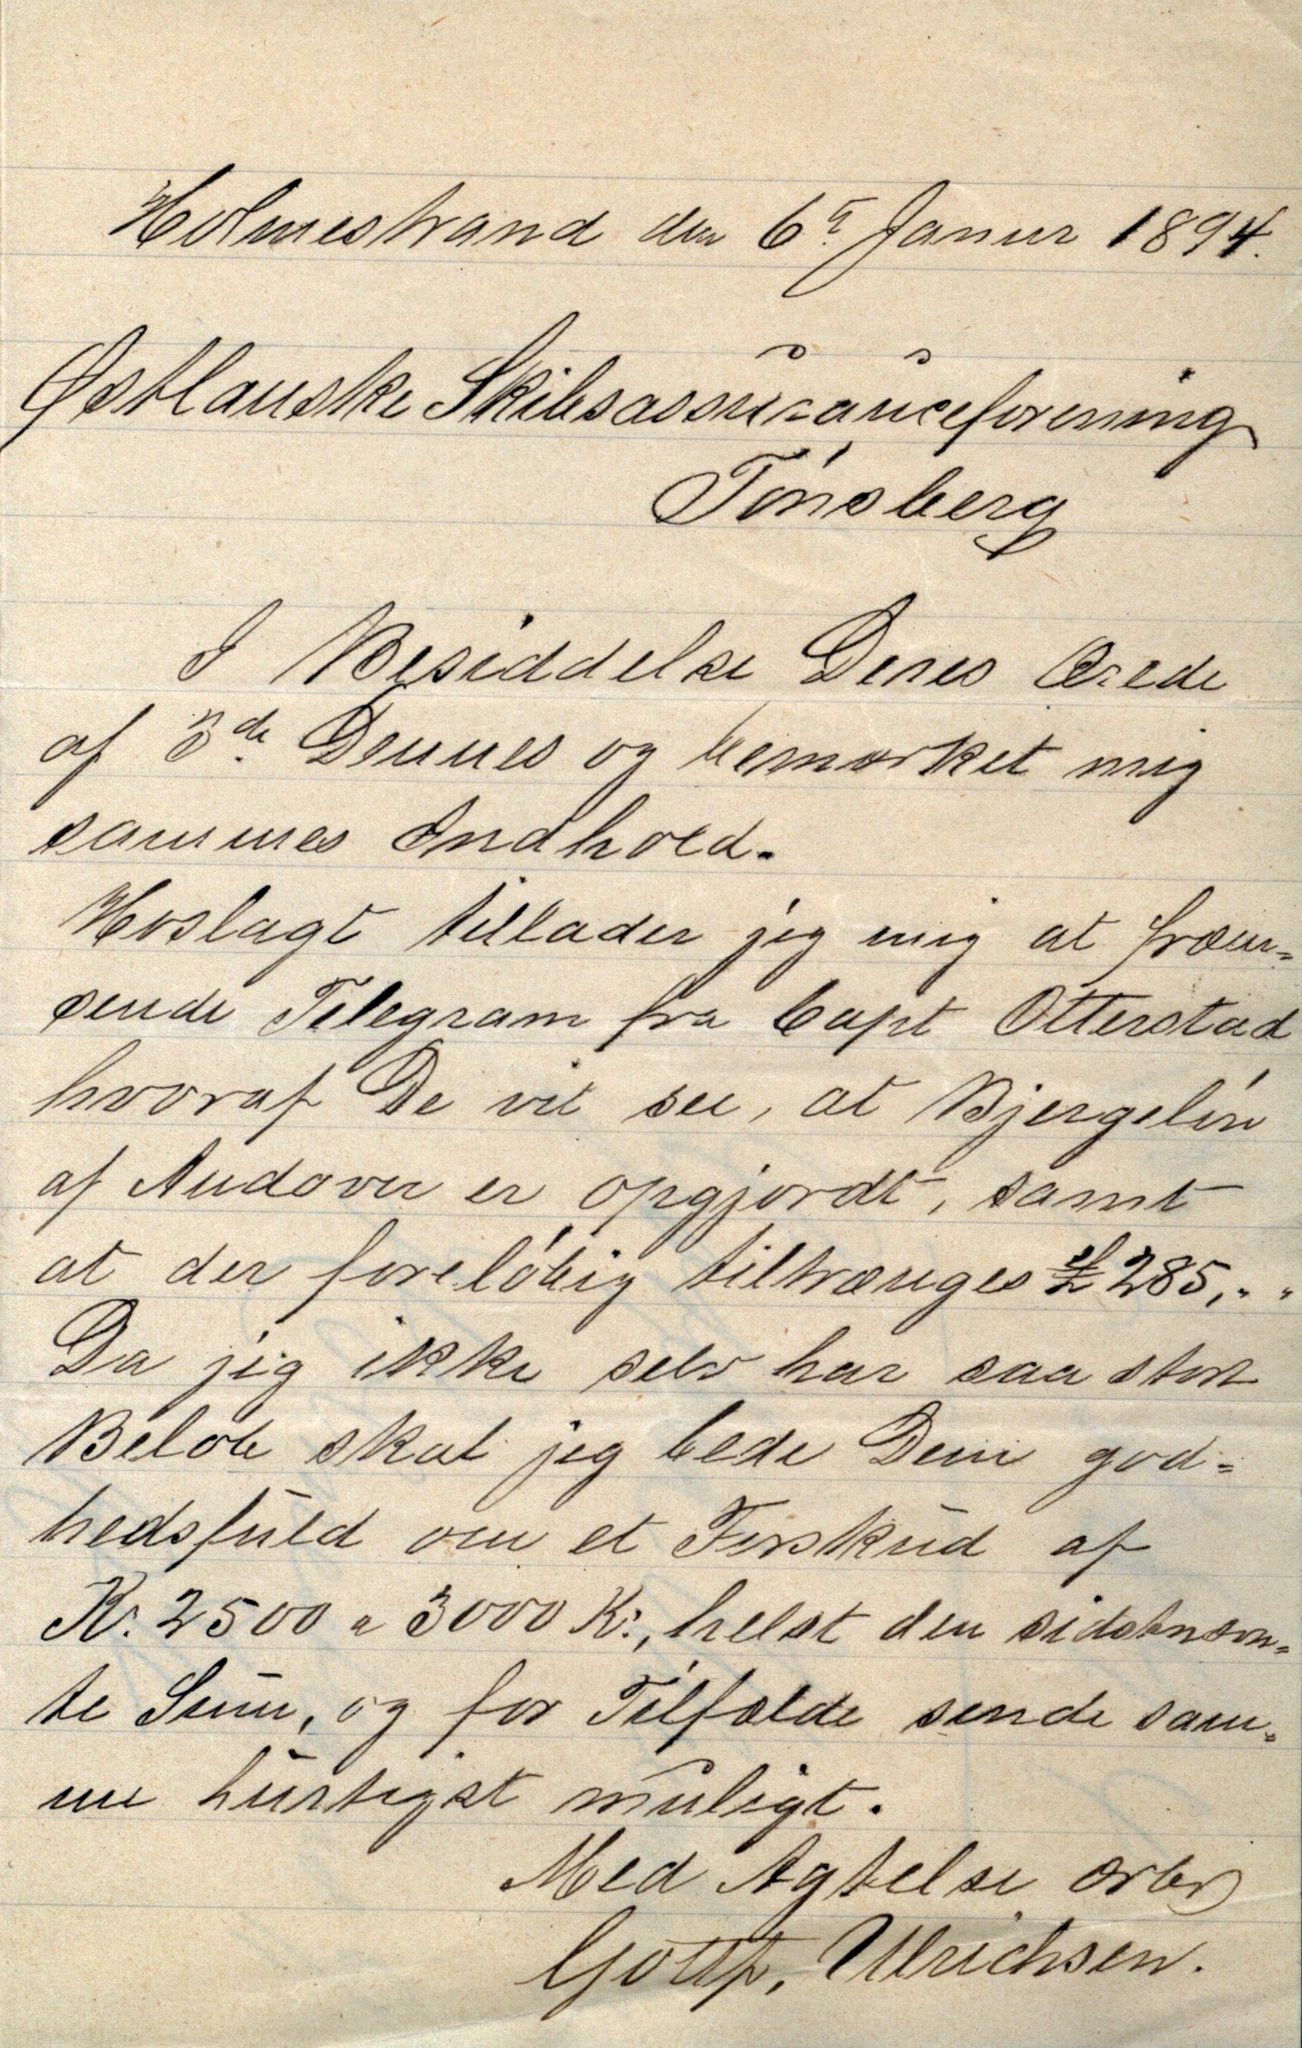 Holmestrand den 6t Januar 1894.
Østlanske Skibsassuranceforening
Tönsberg
I Besiddelse Deres Ærede
af 3de Dennes og bemærket mig
sammes Indhold.
Hoslagt tillader jeg mig at frem=
sende Telegram fra Capt Otterstad
hvoraf De vil see, at Bjergelön
af Andover er opgjordt, samt
at der forelöbig tiltrænges £285,. .
Da jeg ikke selv har saa stort
Belöb skal jeg bede Dem god=
hedsfuld om et Forskud af
Kr. 2500 a 3000 Kr., helst den sidstnævn=
te Sum, og for Tilfælde sende sam=
me hurtigst muligt.
Med Agtelse ærb
Gottf, Ulrichsen.